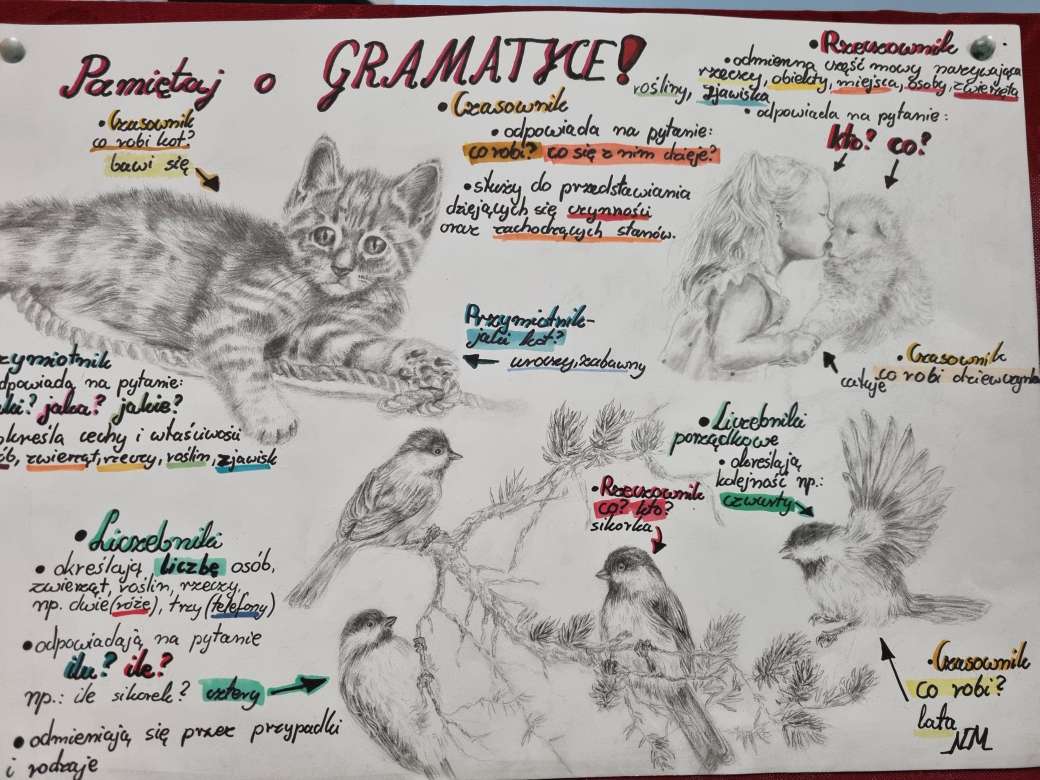 Pamiętaj o GRAMATYCE!
• Czasownik
co robi kot?
bawi się
• Czasownik
• odpowiada na pytanie:
co robi? co się z nim dzieje?
• służy do przedstawiania
dziejących się czynności
oraz zachodzących stanów.
• Rzeczownik
• odmienna część mowy nazywająca
rzeczy, obiekty, miejsca, osoby, zwierzęta
rośliny, zjawiska
• odpowiada na pytanie:
kto? co?
Przymiotnik-
jaki kot?
uroczy, zabawny
• Czasownik
co robi dziewczynka
całuje
zymiotnik
dpowiada na pytanie:
ki? jaka? jakie?
określa cechy i właściwości
ób, zwierząt, rzeczy, roślin, zjawisk
• Liczebniki
porządkowe
• określają
kolejność np.:
czwarty
• Rzeczownik
co? kto?
sikorka
• Liczebniki
• określają liczbę osób,
zwierząt, roślin, rzeczy,
np. dwie (róże), trzy (telefony)
• odpowiadają na pytanie
ilu? ile?
np.: ile sikorek? cztery
• odmieniają się przez przypadki
i rodzaje
• Czasownik
co robi?
lata
NM